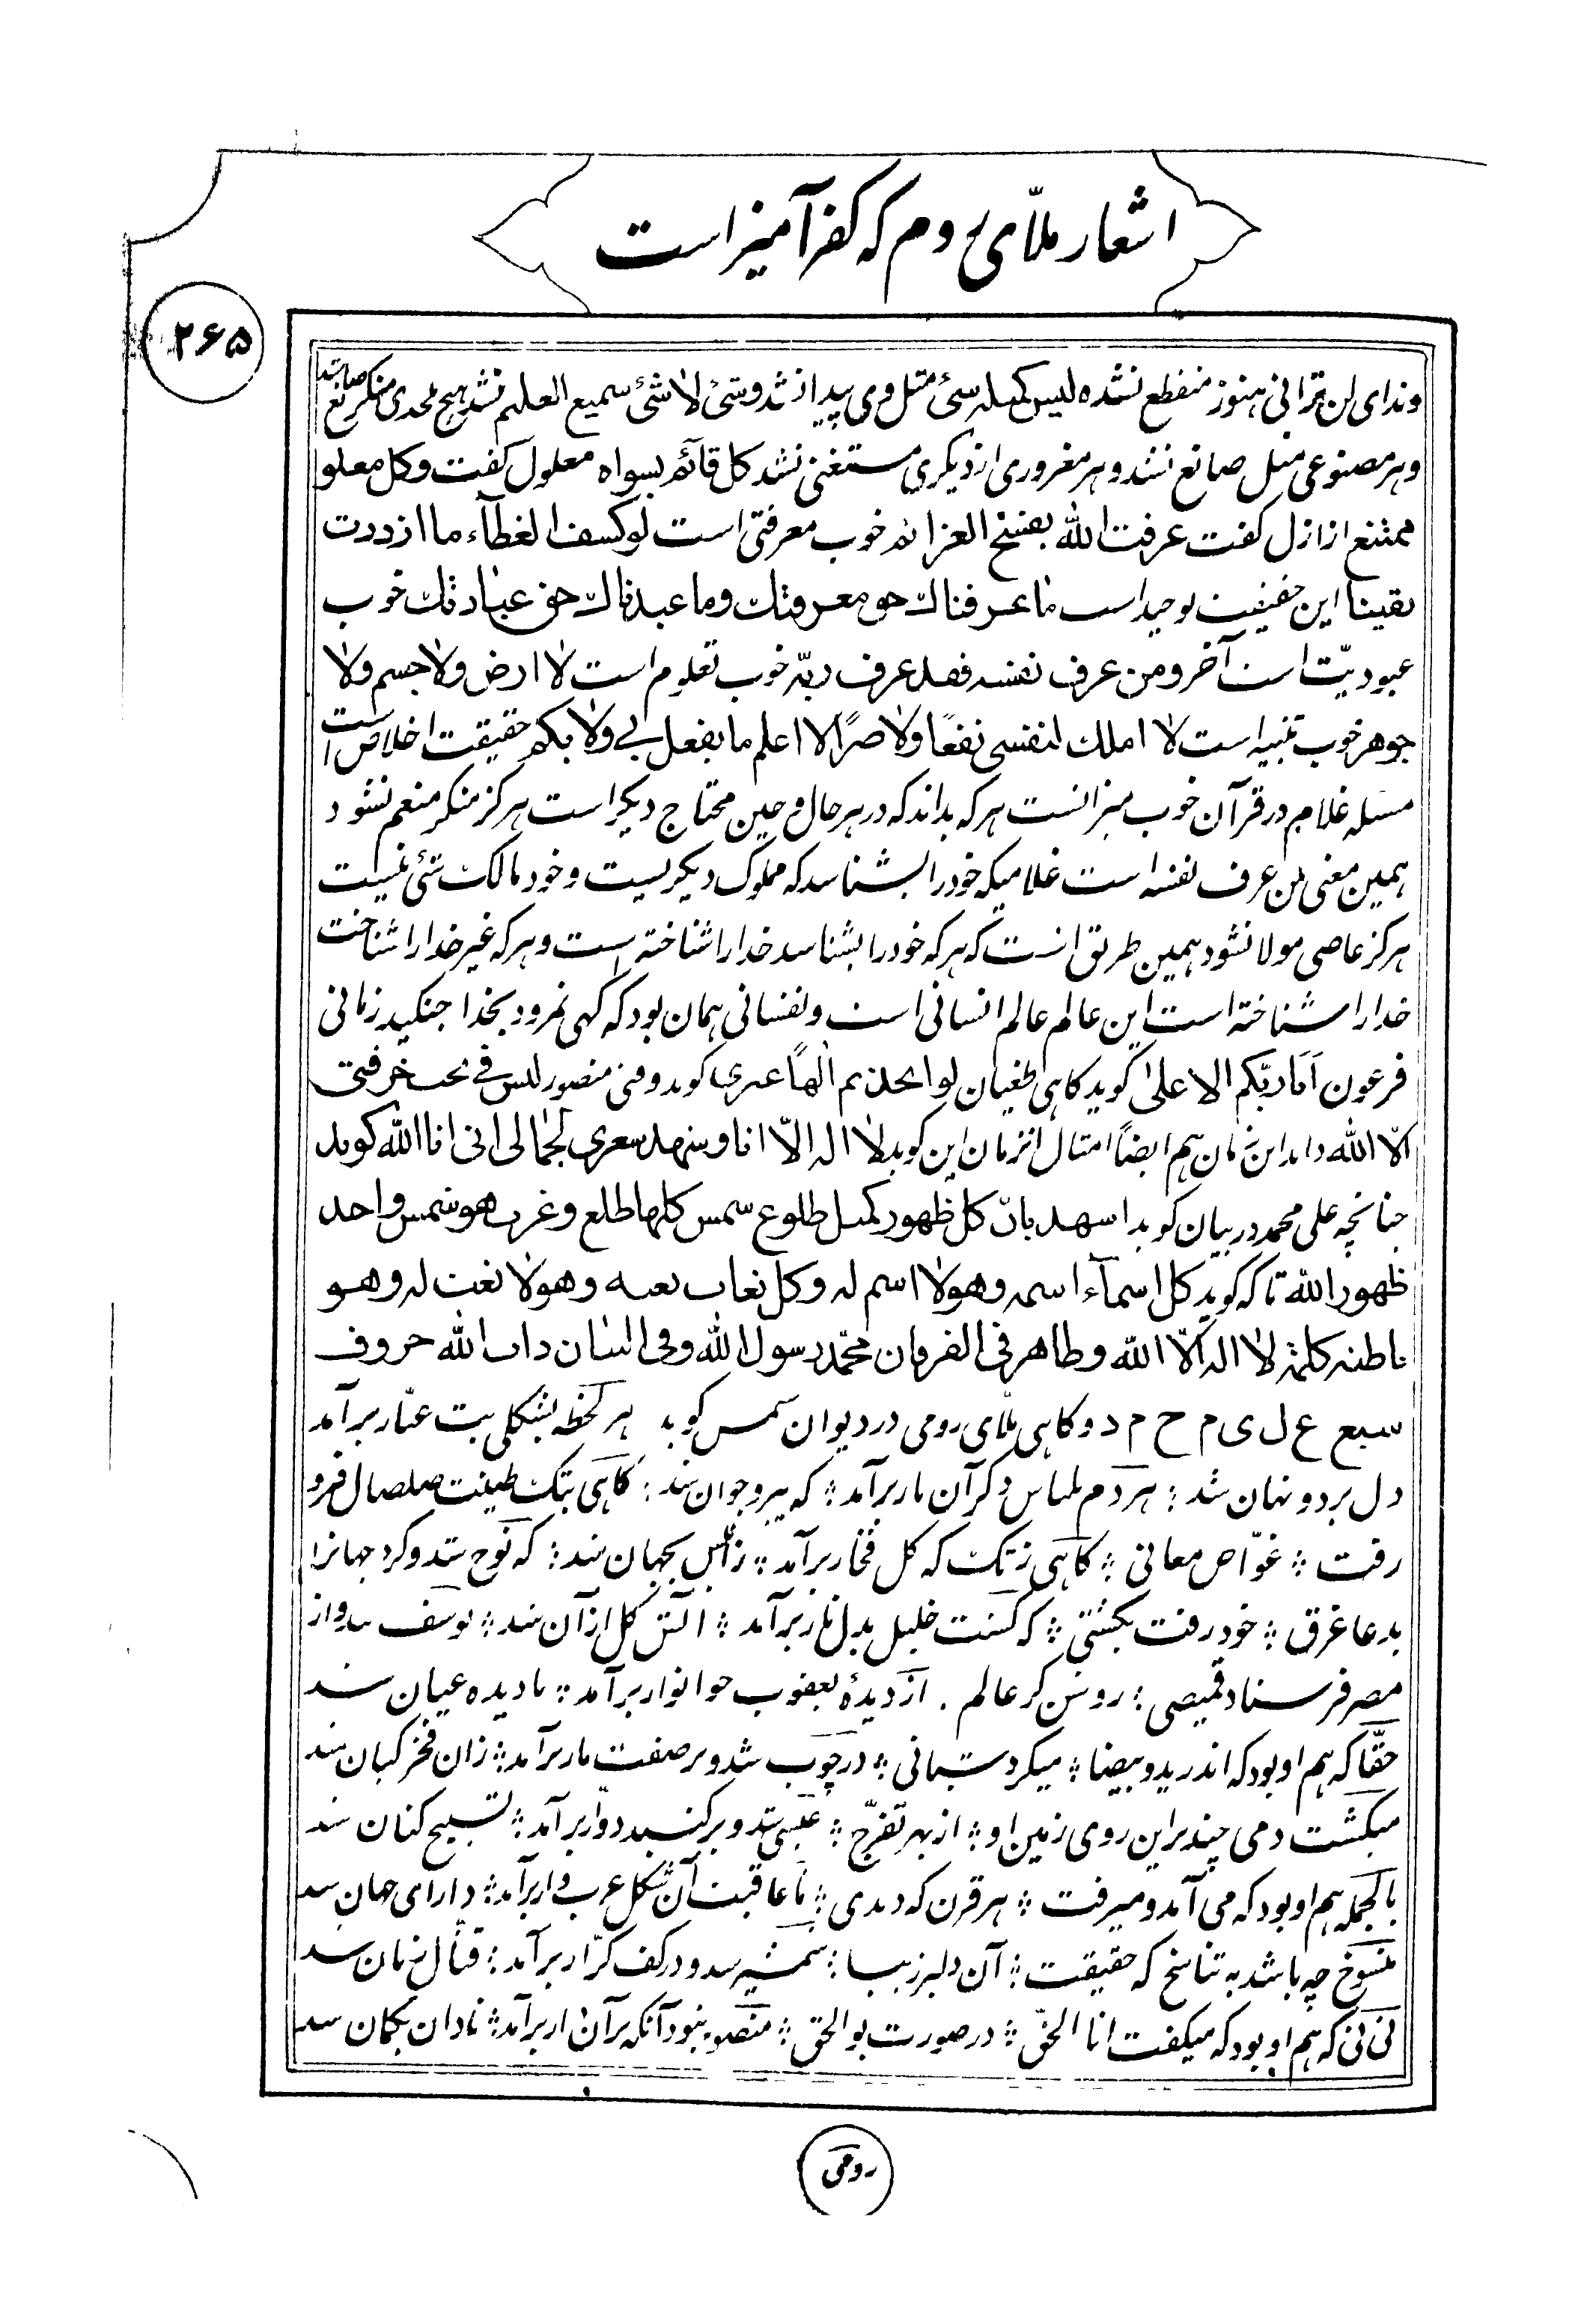 اشعار ملّای روم که کفرآمیز است
۲۶۵
وندای لن ترانی هنوز منقطع نشده لیس کمثله شیٔ مثل وی پیدا نشد وشیٔ لاشیٔ سمیع العلیم نشد هیچ ملحدی منکر صانع نشد
وهر مصنوعی مثل صانع نشد وهر مغروری از دیکری مستغنی نشد کل قائم بسواه معلول کفت وکل معلو
ممتنع از ازل کفت عرفت الله بفسخ العزائم خوب معرفتی است لو کشف الغطآء ما ازددت
یقینا این حقیقت توحید است ما عرفناك حق معرفتك وما عبدناك حق عبادتك خوب
عبودیّت است آخر ومن عرف نفسه فقد عرف ربّه خوب تعلیم است لا ارض ولا جسم ولا
جوهر خوب تنبیه است لا املك لنفسی نفعًا ولا ضرًا لا اعلم ما یفعل بی ولا بکم حقیقت اخلاص است
مسئله غلام در قرآن خوب میزانست هرکه بداند که در هر حال وحین محتاج دیکر است هرکز منکر منعم نشود
همین معنی من عرف نفسه است غلامیکه خود را بشناسد که مملوک دیکریست وخود مالک شئی نیست
هرکز عاصی مولا نشود همین طریق است که هرکه خود را بشناسد خدا را شناخته است وهرکه غیر خدا را شناخت
خدا را شناخته است این عالم عالم انسانی است ونفسانی همان بود که کهی نمرود بخدا جنکید زمانی
فرعون اَنَا ربّکم الاعلیٰ کوید کاهی طغیان لو اتخذتم الٰهًا غیری کوید وفنی منصور لیس فی تحت خرقتی
الّا الله داند این زمان هم ایضًا امثال انزمان این کوید لا اله الّا انا وینهد سعری لجمالی انی انا الله کوید
چنانچه علی محمد در بیان کوید اشهد بانّ کل ظهور کمثل طلوع شمس کلها طلع وغرب هو شمس واحد
ظهور الله تا که کوید کل اسمآء اسمه وهو لا اسم له وکل نعات نعته وهو لا نعت له وهو
باطنه کلمة لا اله الّا الله وظاهر فی الفرقان محمّد رسول الله وفی البیان ذات الله حروف
سبع ع ل ی م ح م د وکاهی ملّای رومی در دیوان شمس کوید هر لحظه بشکلی بت عیّار برآمد
دل برد ونهان شد ؛ هر دم بلباس دکر آن یار برآمد ؛ که پیر وجوان شد ؛ کاهی بتک طینت صلصال فرو
رفت ؛ غوّاص معانی ؛ کاهی ز تک که کل فخّار برآمد ؛ زان پس بجهان شد ؛ که نوح شد وکرد جهانرا
بدعا غرق ؛ خود رفت بکشتی ؛ که کشت خلیل بدل نار برآمد ؛ آتش کل از آن شد ؛ یوسف شد واز
مصر فرستاد قمیصی ؛ روشن کر عالم . از دیدهٔ یعقوب چو انوار برآمد ؛ تا دیده عیان شد
حقّا که هم او بود که اندر ید وبیضا ؛ میکرد شبانی ؛ در چوب شد وبر صفت مار برآمد ؛ زان فخر کیان شد
میکشت دمی چند براین روی زمین او ؛ از بهر تفرّج ؛ عیسی شد وبر کنبد دوّار برآمد ؛ تسبیح کنان شد
بالجمله هم او بود که می آمد ومیرفت ؛ هر قرن که دیدی ؛ تا عاقبت آن شکل عرب وار برآمد ؛ دارای جهان شد
منسوخ چه باشد به تناسخ که حقیقت ؛ آن دلبر زیبا ؛ شمشیر شد ودر کف کرّار برآمد ؛ قتّال زمان شد
نی نی که هم او بود که میکفت انا الحقّ ؛ در صورت بوالحق ؛ منصور نبود آنکه برآن دار برآمد ؛ نادان بکمان شد
رومی